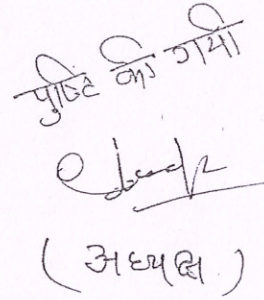 पुष्टि की गयी
( अध्यक्ष )